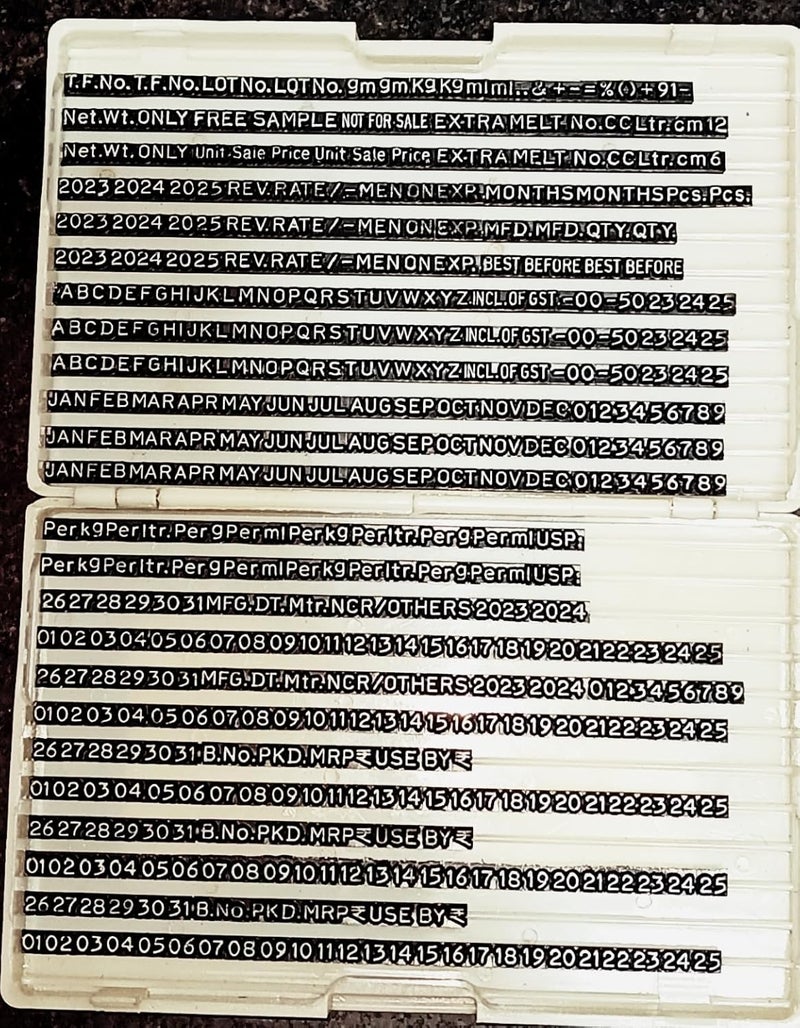 T.F.No. T.F.No. LOTNo. LOTNo. gm gm Kg Kg ml ml . . & + - = % ( ) + 91 -
Net.Wt. ONLY FREE SAMPLE NOT FOR SALE EXTRA MELT No. CC Ltr. cm 12
Net.Wt. ONLY Unit Sale Price Unit Sale Price EXTRA MELT No. CC Ltr. cm 6
2023 2024 2025 REV. RATE /- MEN ON EXP. MONTHS MONTHS Pcs. Pcs.
2023 2024 2025 REV. RATE /- MEN ON EXP. MFD. MFD. QTY. QTY.
2023 2024 2025 REV. RATE /- MEN ON EXP. BEST BEFORE BEST BEFORE
A B C D E F G H I J K L M N O P Q R S T U V W X Y Z INCL. OF GST -00-50 23 24 25
A B C D E F G H I J K L M N O P Q R S T U V W X Y Z INCL. OF GST -00-50 23 24 25
A B C D E F G H I J K L M N O P Q R S T U V W X Y Z INCL. OF GST -00-50 23 24 25
JAN FEB MAR APR MAY JUN JUL AUG SEP OCT NOV DEC 0 1 2 3 4 5 6 7 8 9
JAN FEB MAR APR MAY JUN JUL AUG SEP OCT NOV DEC 0 1 2 3 4 5 6 7 8 9
JAN FEB MAR APR MAY JUN JUL AUG SEP OCT NOV DEC 0 1 2 3 4 5 6 7 8 9
Per kg Per ltr. Per g Per ml Per kg Per ltr. Per g Per ml USP:
Per kg Per ltr. Per g Per ml Per kg Per ltr. Per g Per ml USP:
26 27 28 29 30 31 MFG. DT. Mtr. NCR/OTHERS 2023 2024
01 02 03 04 05 06 07 08 09 10 11 12 13 14 15 16 17 18 19 20 21 22 23 24 25
26 27 28 29 30 31 MFG. DT. Mtr. NCR/OTHERS 2023 2024 0 1 2 3 4 5 6 7 8 9
01 02 03 04 05 06 07 08 09 10 11 12 13 14 15 16 17 18 19 20 21 22 23 24 25
26 27 28 29 30 31 B.No. PKD. MRP ₹ USE BY ₹
01 02 03 04 05 06 07 08 09 10 11 12 13 14 15 16 17 18 19 20 21 22 23 24 25
26 27 28 29 30 31 B.No. PKD. MRP ₹ USE BY ₹
01 02 03 04 05 06 07 08 09 10 11 12 13 14 15 16 17 18 19 20 21 22 23 24 25
26 27 28 29 30 31 B.No. PKD. MRP ₹ USE BY ₹
01 02 03 04 05 06 07 08 09 10 11 12 13 14 15 16 17 18 19 20 21 22 23 24 25